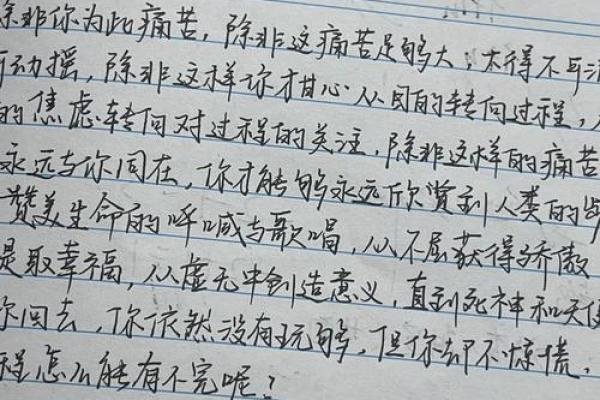 除非你为此痛苦,除非这痛苦足够大,大得不可
动摇,除非这样你才甘心从目的转向过程,
的焦虑转向对过程的关注,除非这样的痛苦
永远与你同在,你才能够永远欣赏到人类的步
赞美生命的呼喊与歌唱,从不屈获得骄傲
是取幸福,从虚无中创造意义,直到死神和天使
你回去,你依然没有玩够,但你却不惊慌,
程怎么能有不完呢?